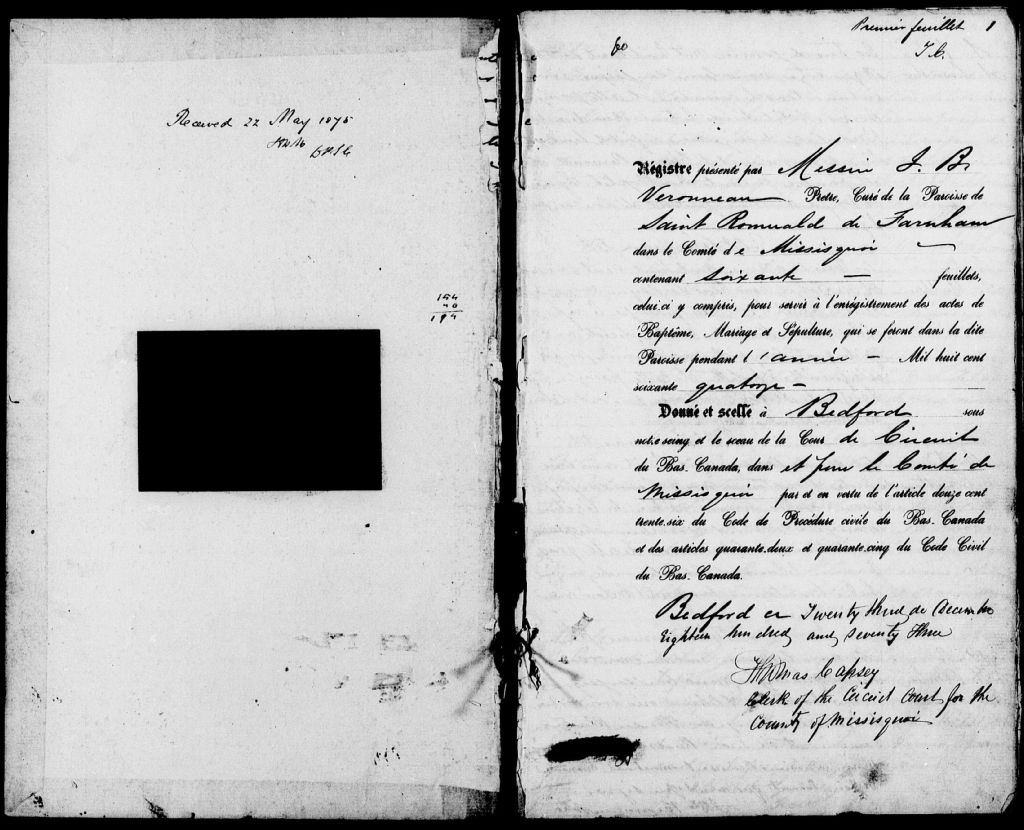 Received 22 May 1875
164
194
Premier feuillet 1
60
T. C.
Régistre présenté par Messire J. B.
Veronneau Pretre, Curé de la Paroisse de
Saint Romuald de Farnham
dans le Comté de Missisquoi
contenant soixante feuillets,
celui-ci y compris, pour servir à l'enrégistrement des actes de
Baptême, Mariage et Sépulture, qui se feront dans la dite
Paroisse pendant l'année Mil huit cent
soixante quatorze
Donné et scellé à Bedford sous
notre seing et le sceau de la Cour de Circuit
du Bas-Canada, dans et pour le Comté de
Missisquoi par et en vertu de l'article douze cent
trente-six du Code de Procédure civile du Bas-Canada
et des articles quarante-deux et quarante-cinq du Code Civil
du Bas-Canada.
Bedford ce Twenty third de December
Eighteen hundred and seventy three
Thomas Capsey
Clerk of the Circuit Court for the
County of Missisquoi